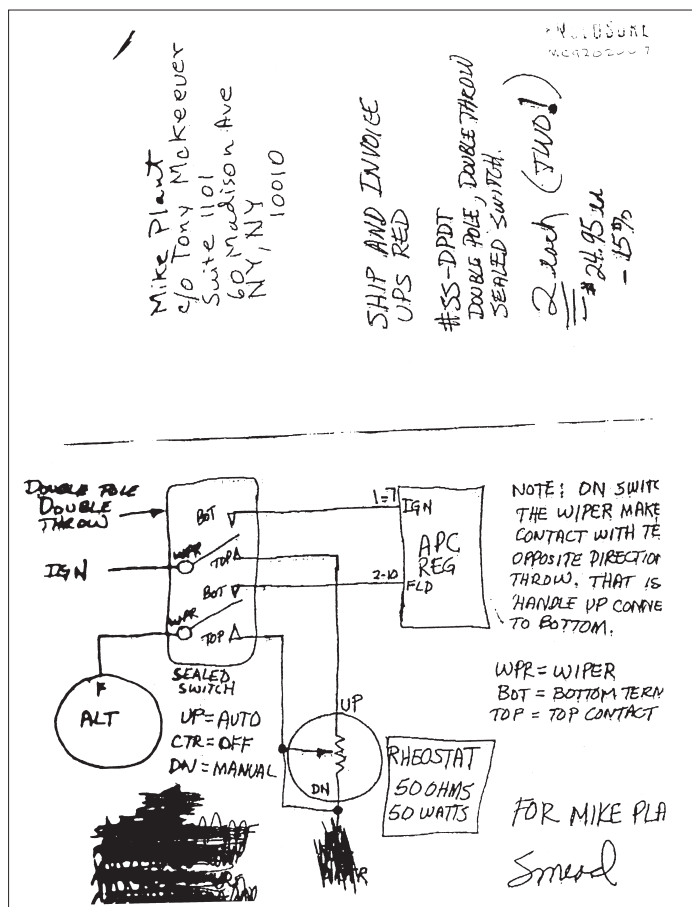 Mike Plant
c/o Tony McKeever
Suite 1101
60 Madison Ave
NY, NY
10010
SHIP AND INVOICE
UPS RED
#SS-DPDT
DOUBLE POLE, DOUBLE THROW
SEALED SWITCH.
2 each (TWO!)
$24.95 ea
-15%
DOUBLE POLE
DOUBLE
THROW
IGN
BOT
WPR
TOP
BOT
WPR
TOP
F
ALT
SEALED
SWITCH
UP=AUTO
CTR=OFF
DN=MANUAL
1=7
IGN
APC
REG
2-10
FLD
UP
DN
RHEOSTAT
50 OHMS
50 WATTS
NOTE: ON SWITC
THE WIPER MAKE
CONTACT WITH TE
OPPOSITE DIRECTION
THROW. THAT IS
HANDLE UP CONNE
TO BOTTOM.
WPR = WIPER
BOT = BOTTOM TERM
TOP = TOP CONTACT
FOR MIKE PLA
Smead